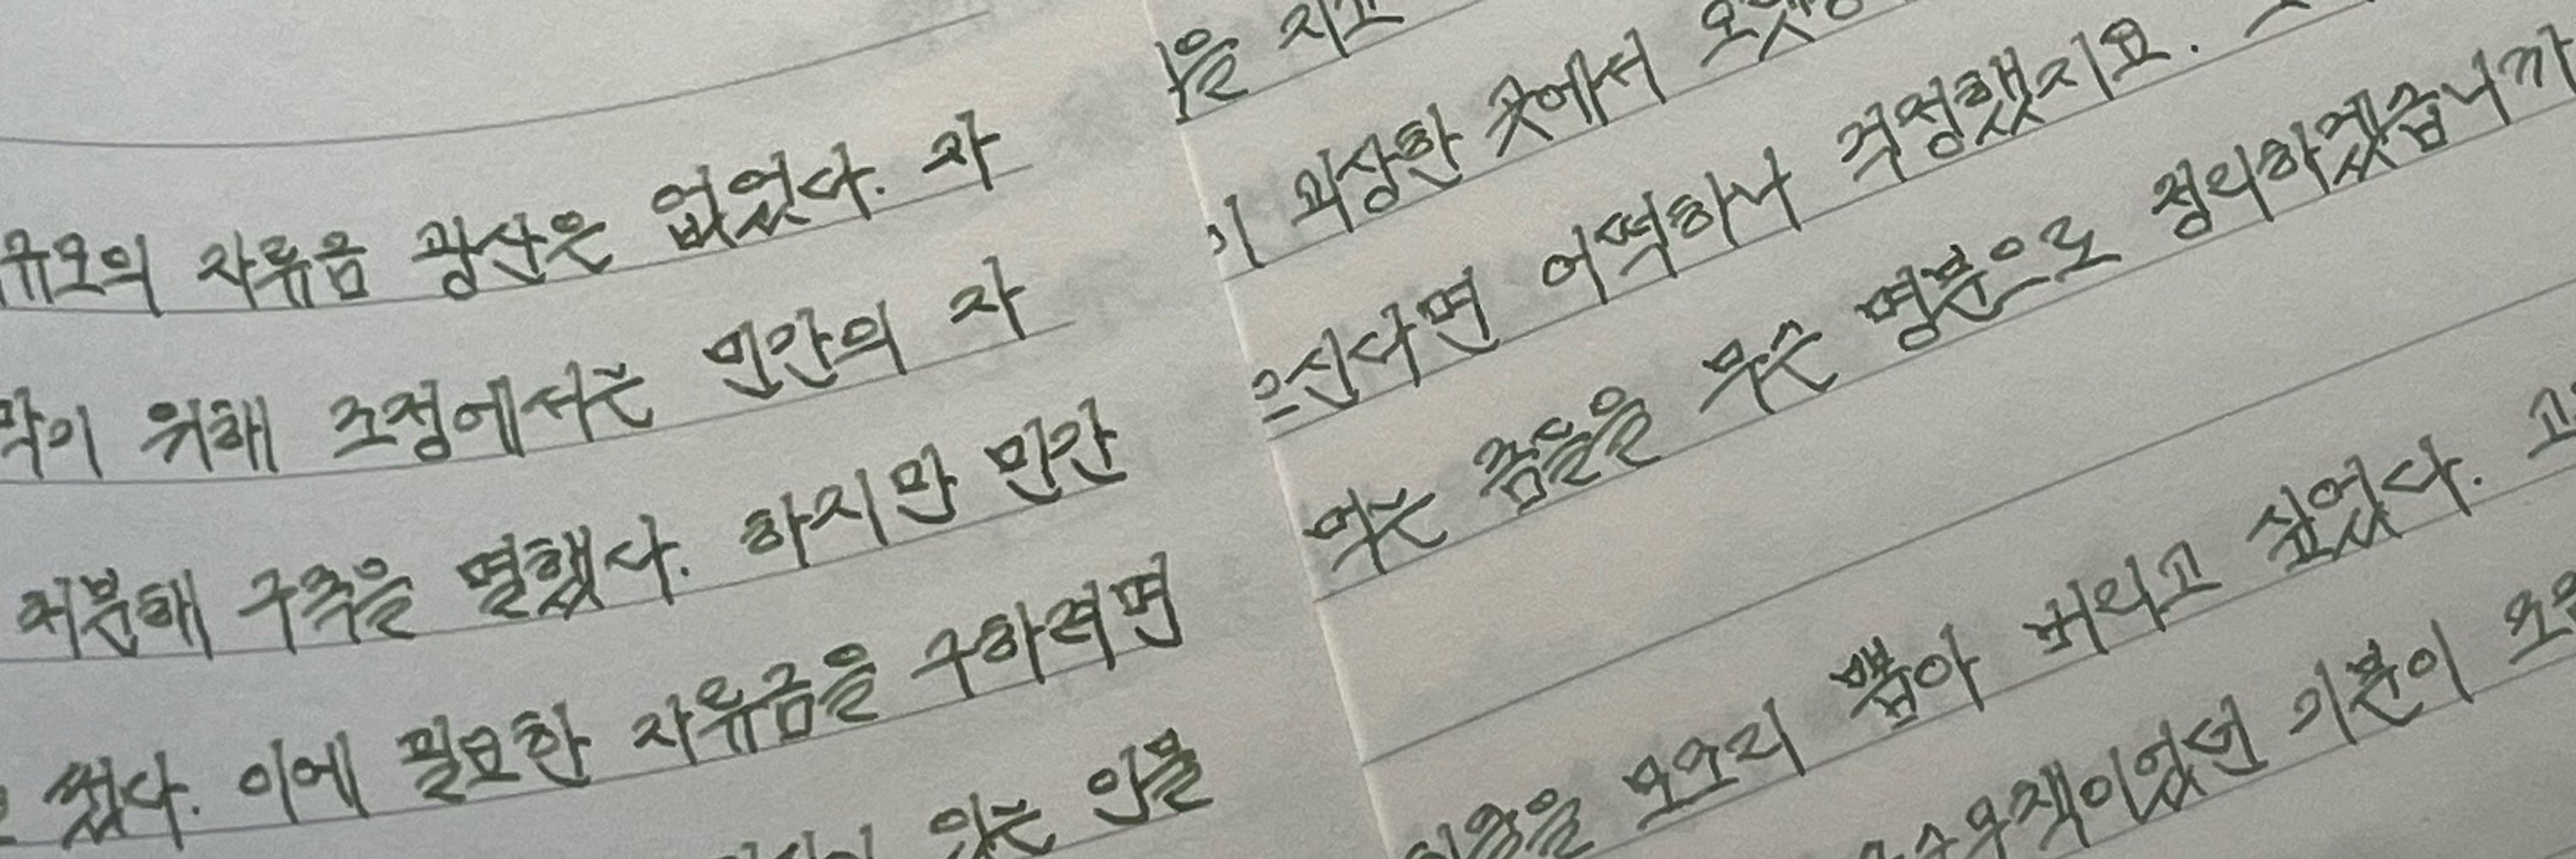 규모의 자류금 광산은 없었다. 자
막기 위해 조정에서는 민간의 자
처분해 구축을 명했다. 하지만 민간
썼다. 이에 필요한 자유금을 구하려면
있는 인물
을 지고
기 괴상한 곳에서
으신다면 어떡하나 걱정했지요.
먹는 죽을을 무슨 명분으로 정리하겠습니까
모조리 뽑아 버리고 싶었다. 고
기분이